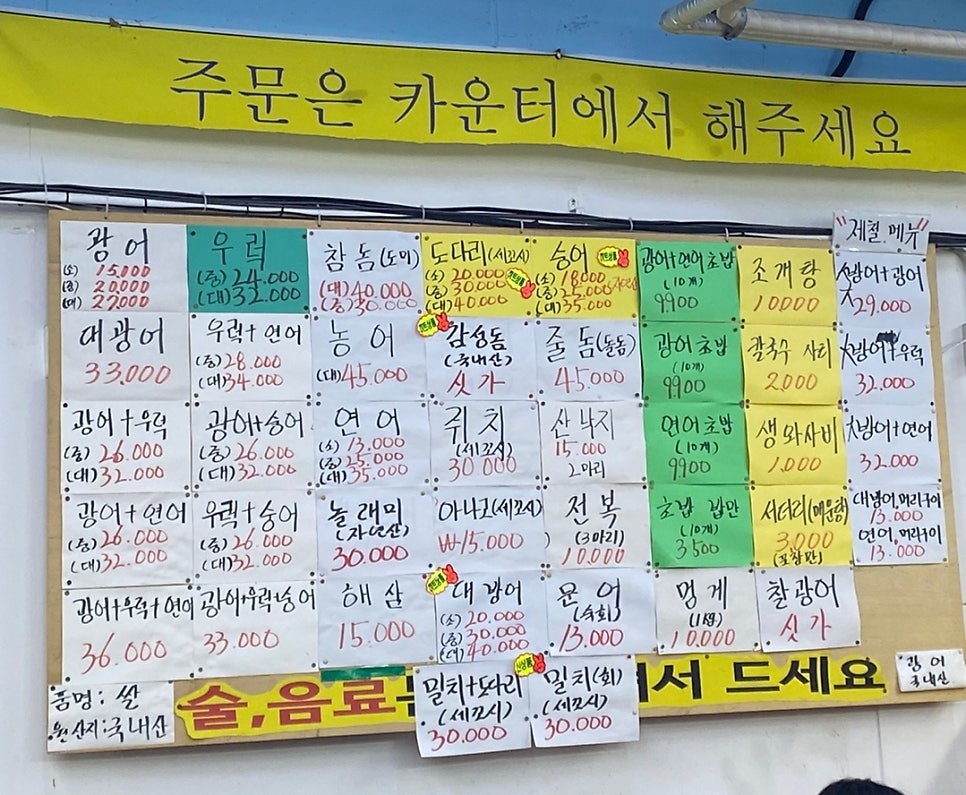 주문은 카운터에서 해주세요
"제철 메뉴"
광어
(소) 15,000
(중) 20,000
(대) 27,000
우럭
(중) 24.000
(대) 32.000
참돔(도미)
(대) 40.000
(중) 30.000
도다리(세꼬시)
(소) 20.000
(중) 30.000
(대) 40.000
숭어
(소) 18.000
(중) 25.000
(대) 35.000
광어+연어초밥
(10개)
9900
조개탕
10.000
大방어+광어
29.000
대광어
33.000
우럭+연어
(중) 28.000
(대) 34.000
농어
(대) 45.000
감성돔
(국내산)
싯가
줄돔(돌돔)
45.000
광어초밥
(10개)
9900
칼국수 사리
2.000
大방어+우럭
32.000
광어+우럭
(중) 26.000
(대) 32.000
광어+숭어
(중) 26.000
(대) 32.000
연어
(소) 13.000
(중) 25.000
(대) 35.000
쥐치
(세꼬시)
30000
산낙지
15.000
2마리
연어초밥
(10개)
9900
생와사비
1.000
大방어+연어
32.000
광어+연어
(중) 26.000
(대) 32.000
우럭+숭어
(중) 26.000
(대) 32.000
놀래미
(자연산)
30.000
아나고(세꼬시)
₩15.000
전복
(3마리)
10.000
초밥 밥만
(10개)
3500
서더리(매운탕)
3.000
(포장만)
대방어,머리구이
13.000
연어,머리구이
13.000
광어+우럭+연어
36.000
광어+우럭+숭어
33.000
해삼
15.000
대광어
(소) 20.000
(중) 30.000
(대) 40.000
문어
(숙회)
13.000
멍게
10.000
찰광어
싯가
품명: 쌀
원산지:국내산
술,음료는
서 드세요
광어
국내산
밀치+도다리
(세꼬시)
30.000
밀치(회)
(세꼬시)
30.000